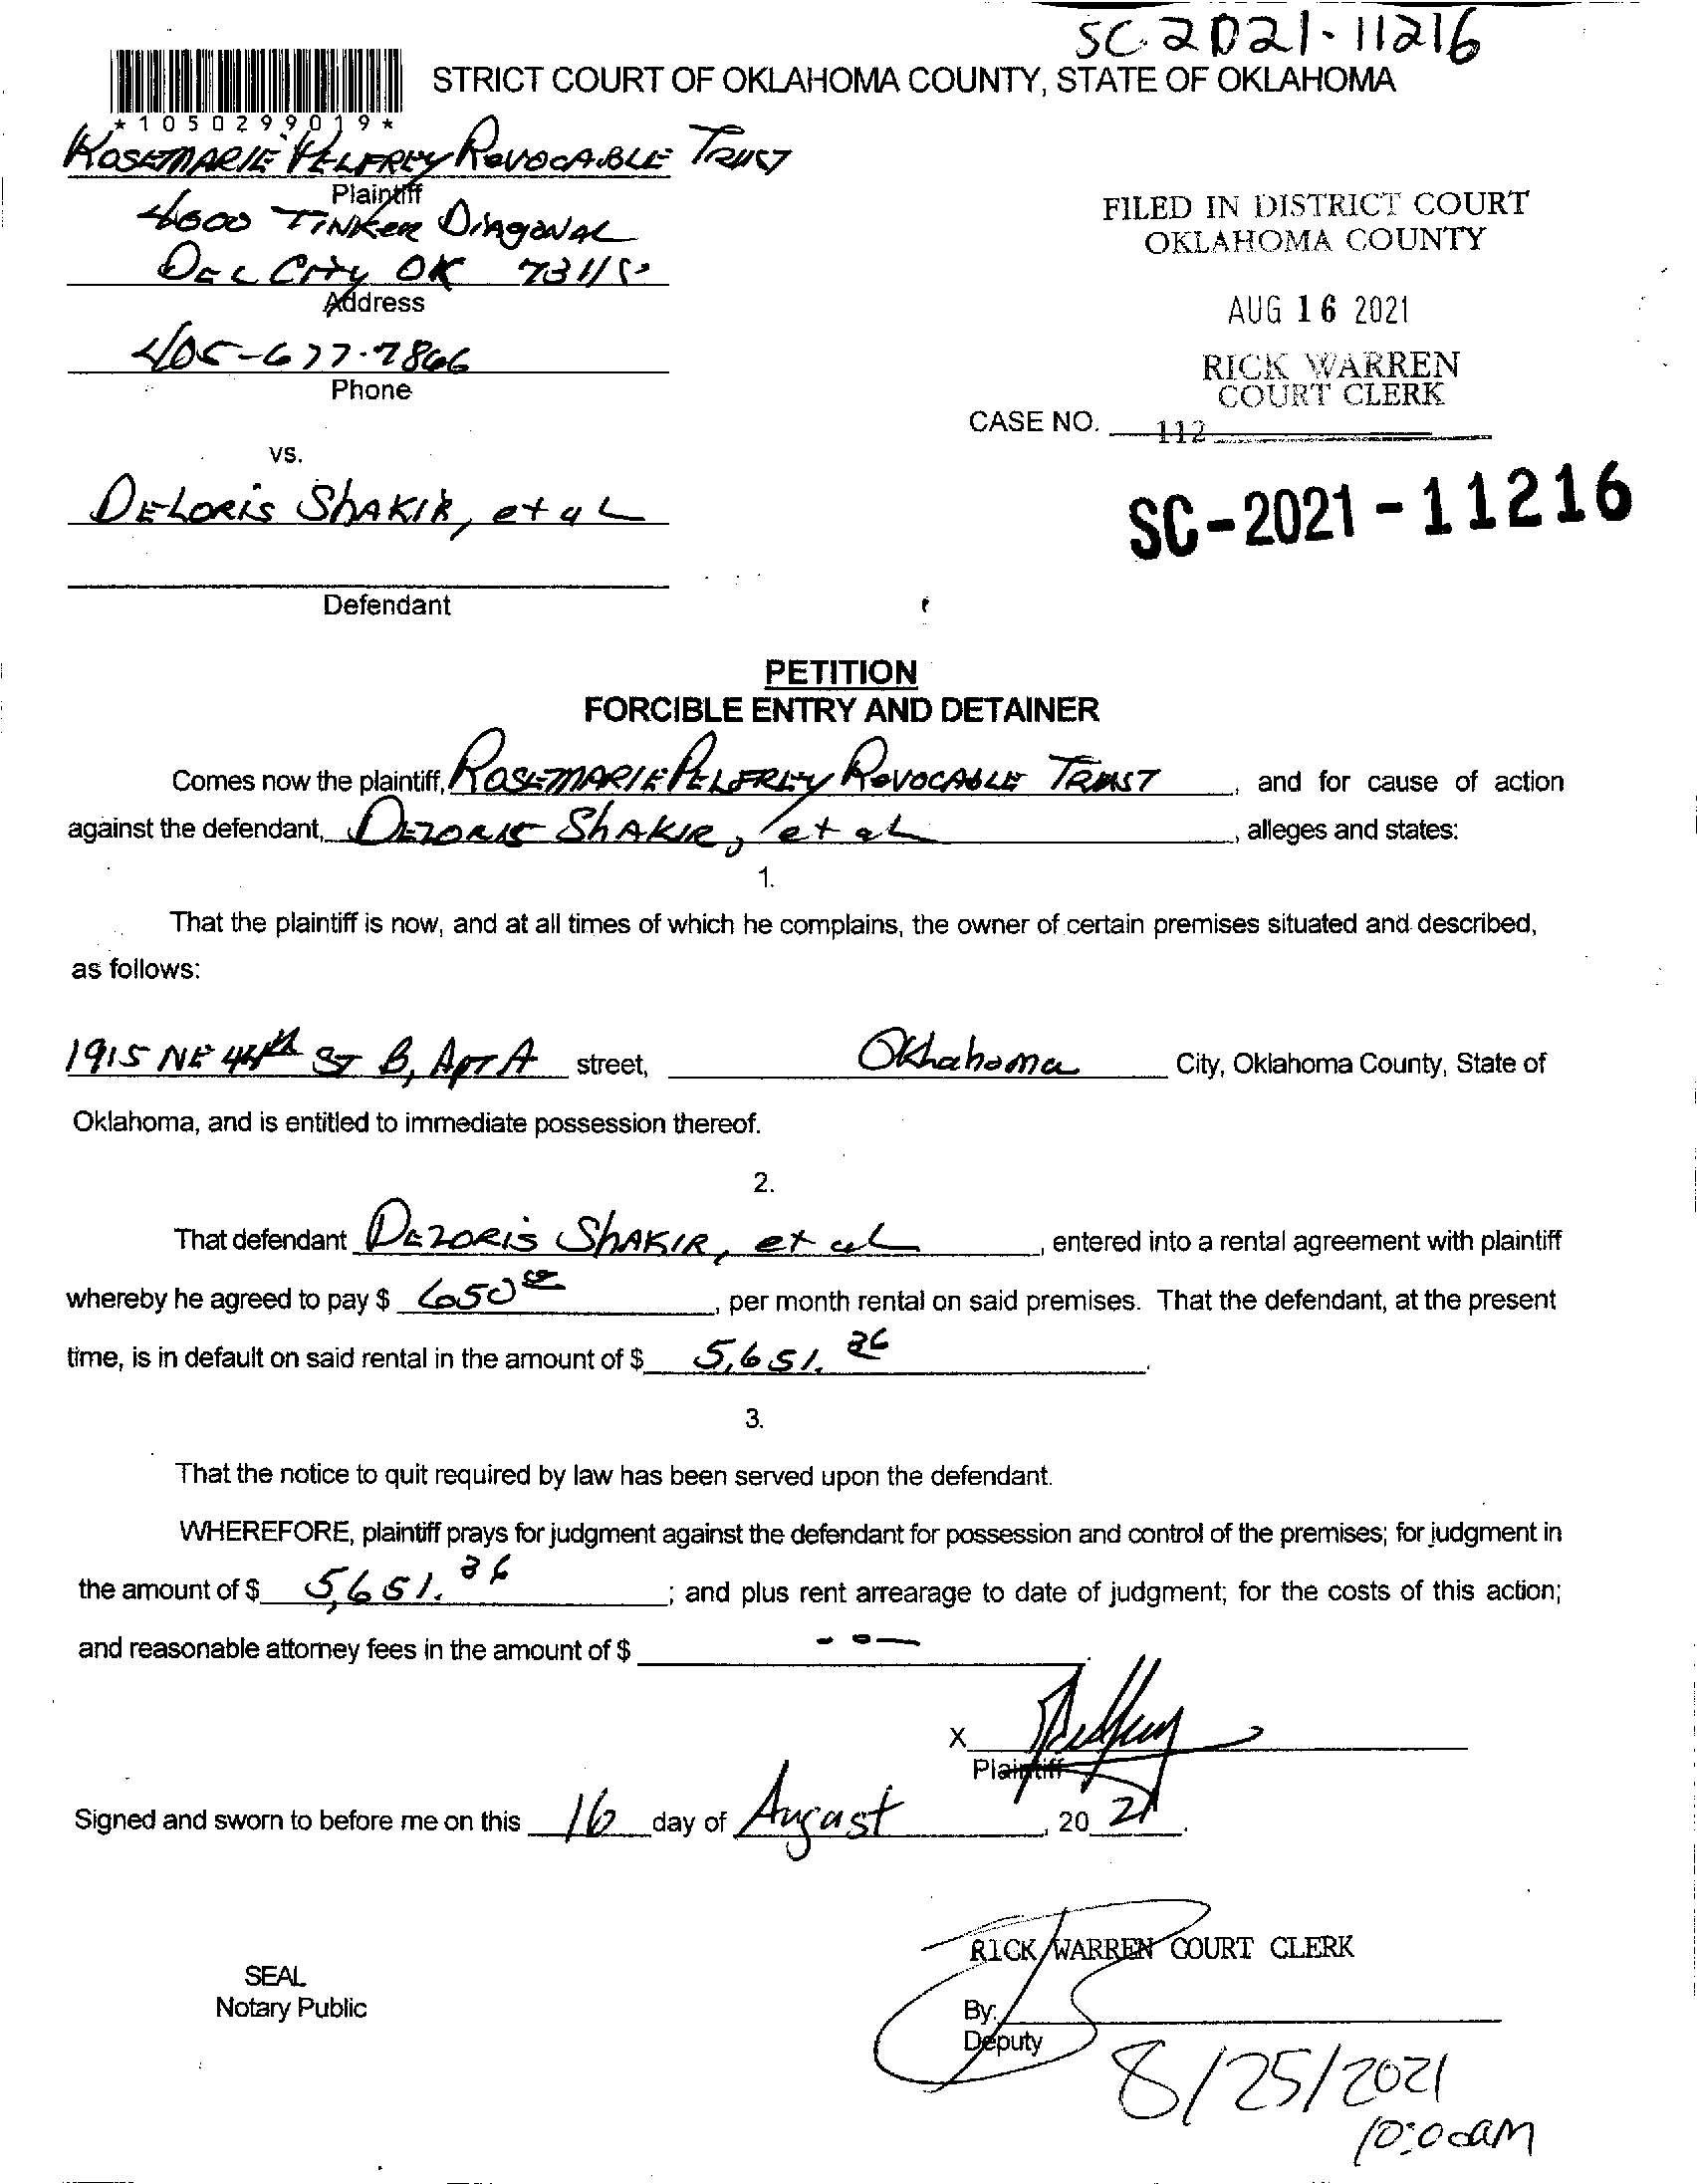 SC-2021-11216
STRICT COURT OF OKLAHOMA COUNTY, STATE OF OKLAHOMA
*1050299019*
ROSEMARIE PELFREY REVOCABLE TRUST
Plaintiff
4600 TINKER DIAGONAL
DEL CITY OK 73115
Address
405-677-7866
Phone
FILED IN DISTRICT COURT
OKLAHOMA COUNTY
AUG 16 2021
RICK WARREN
COURT CLERK
CASE NO. 112
vs.
DELORIS SHAKIR, et al
SC-2021-11216
Defendant
PETITION
FORCIBLE ENTRY AND DETAINER
Comes now the plaintiff, ROSEMARIE PELFREY REVOCABLE TRUST, and for cause of action
against the defendant, DELORIS SHAKIR, et al, alleges and states:
1.
That the plaintiff is now, and at all times of which he complains, the owner of certain premises situated and described,
as follows:
1915 NE 44th ST B, APT A street, Oklahoma City, Oklahoma County, State of
Oklahoma, and is entitled to immediate possession thereof.
2.
That defendant DELORIS SHAKIR, et al, entered into a rental agreement with plaintiff
whereby he agreed to pay $ 650 00, per month rental on said premises. That the defendant, at the present
time, is in default on said rental in the amount of $ 5,651.
3.
That the notice to quit required by law has been served upon the defendant.
WHEREFORE, plaintiff prays for judgment against the defendant for possession and control of the premises; for judgment in
the amount of $ 5,651. ; and plus rent arrearage to date of judgment; for the costs of this action;
and reasonable attorney fees in the amount of $ -0-
X
Plaintiff
Signed and sworn to before me on this 16 day of August, 20 21.
RICK WARREN COURT CLERK
SEAL
Notary Public
By:
Deputy
8/25/2021
10:00AM